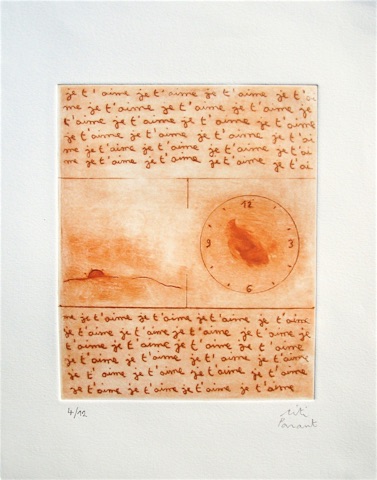 je t'aime je t'aime je t'aime je t'ai
me je t'aime je t'aime je t'aime
t'aime je t'aime je t'aime je
t'aime je t'aime je t'aime je t'ai
me je t'aime je t'aime je t'aime
je t'aime je t'aime je t'ai
12
9 3
6
me je t'aime je t'aime je t'aime
je t'aime je t'aime je t'aime je
t'aime je t'aime je t'aime je t'aime
je t'aime je t'aime je t'aime
je t'aime je t'aime je t'aime je
je t'aime je t'aime je t'aime
4/12
titi
Parant